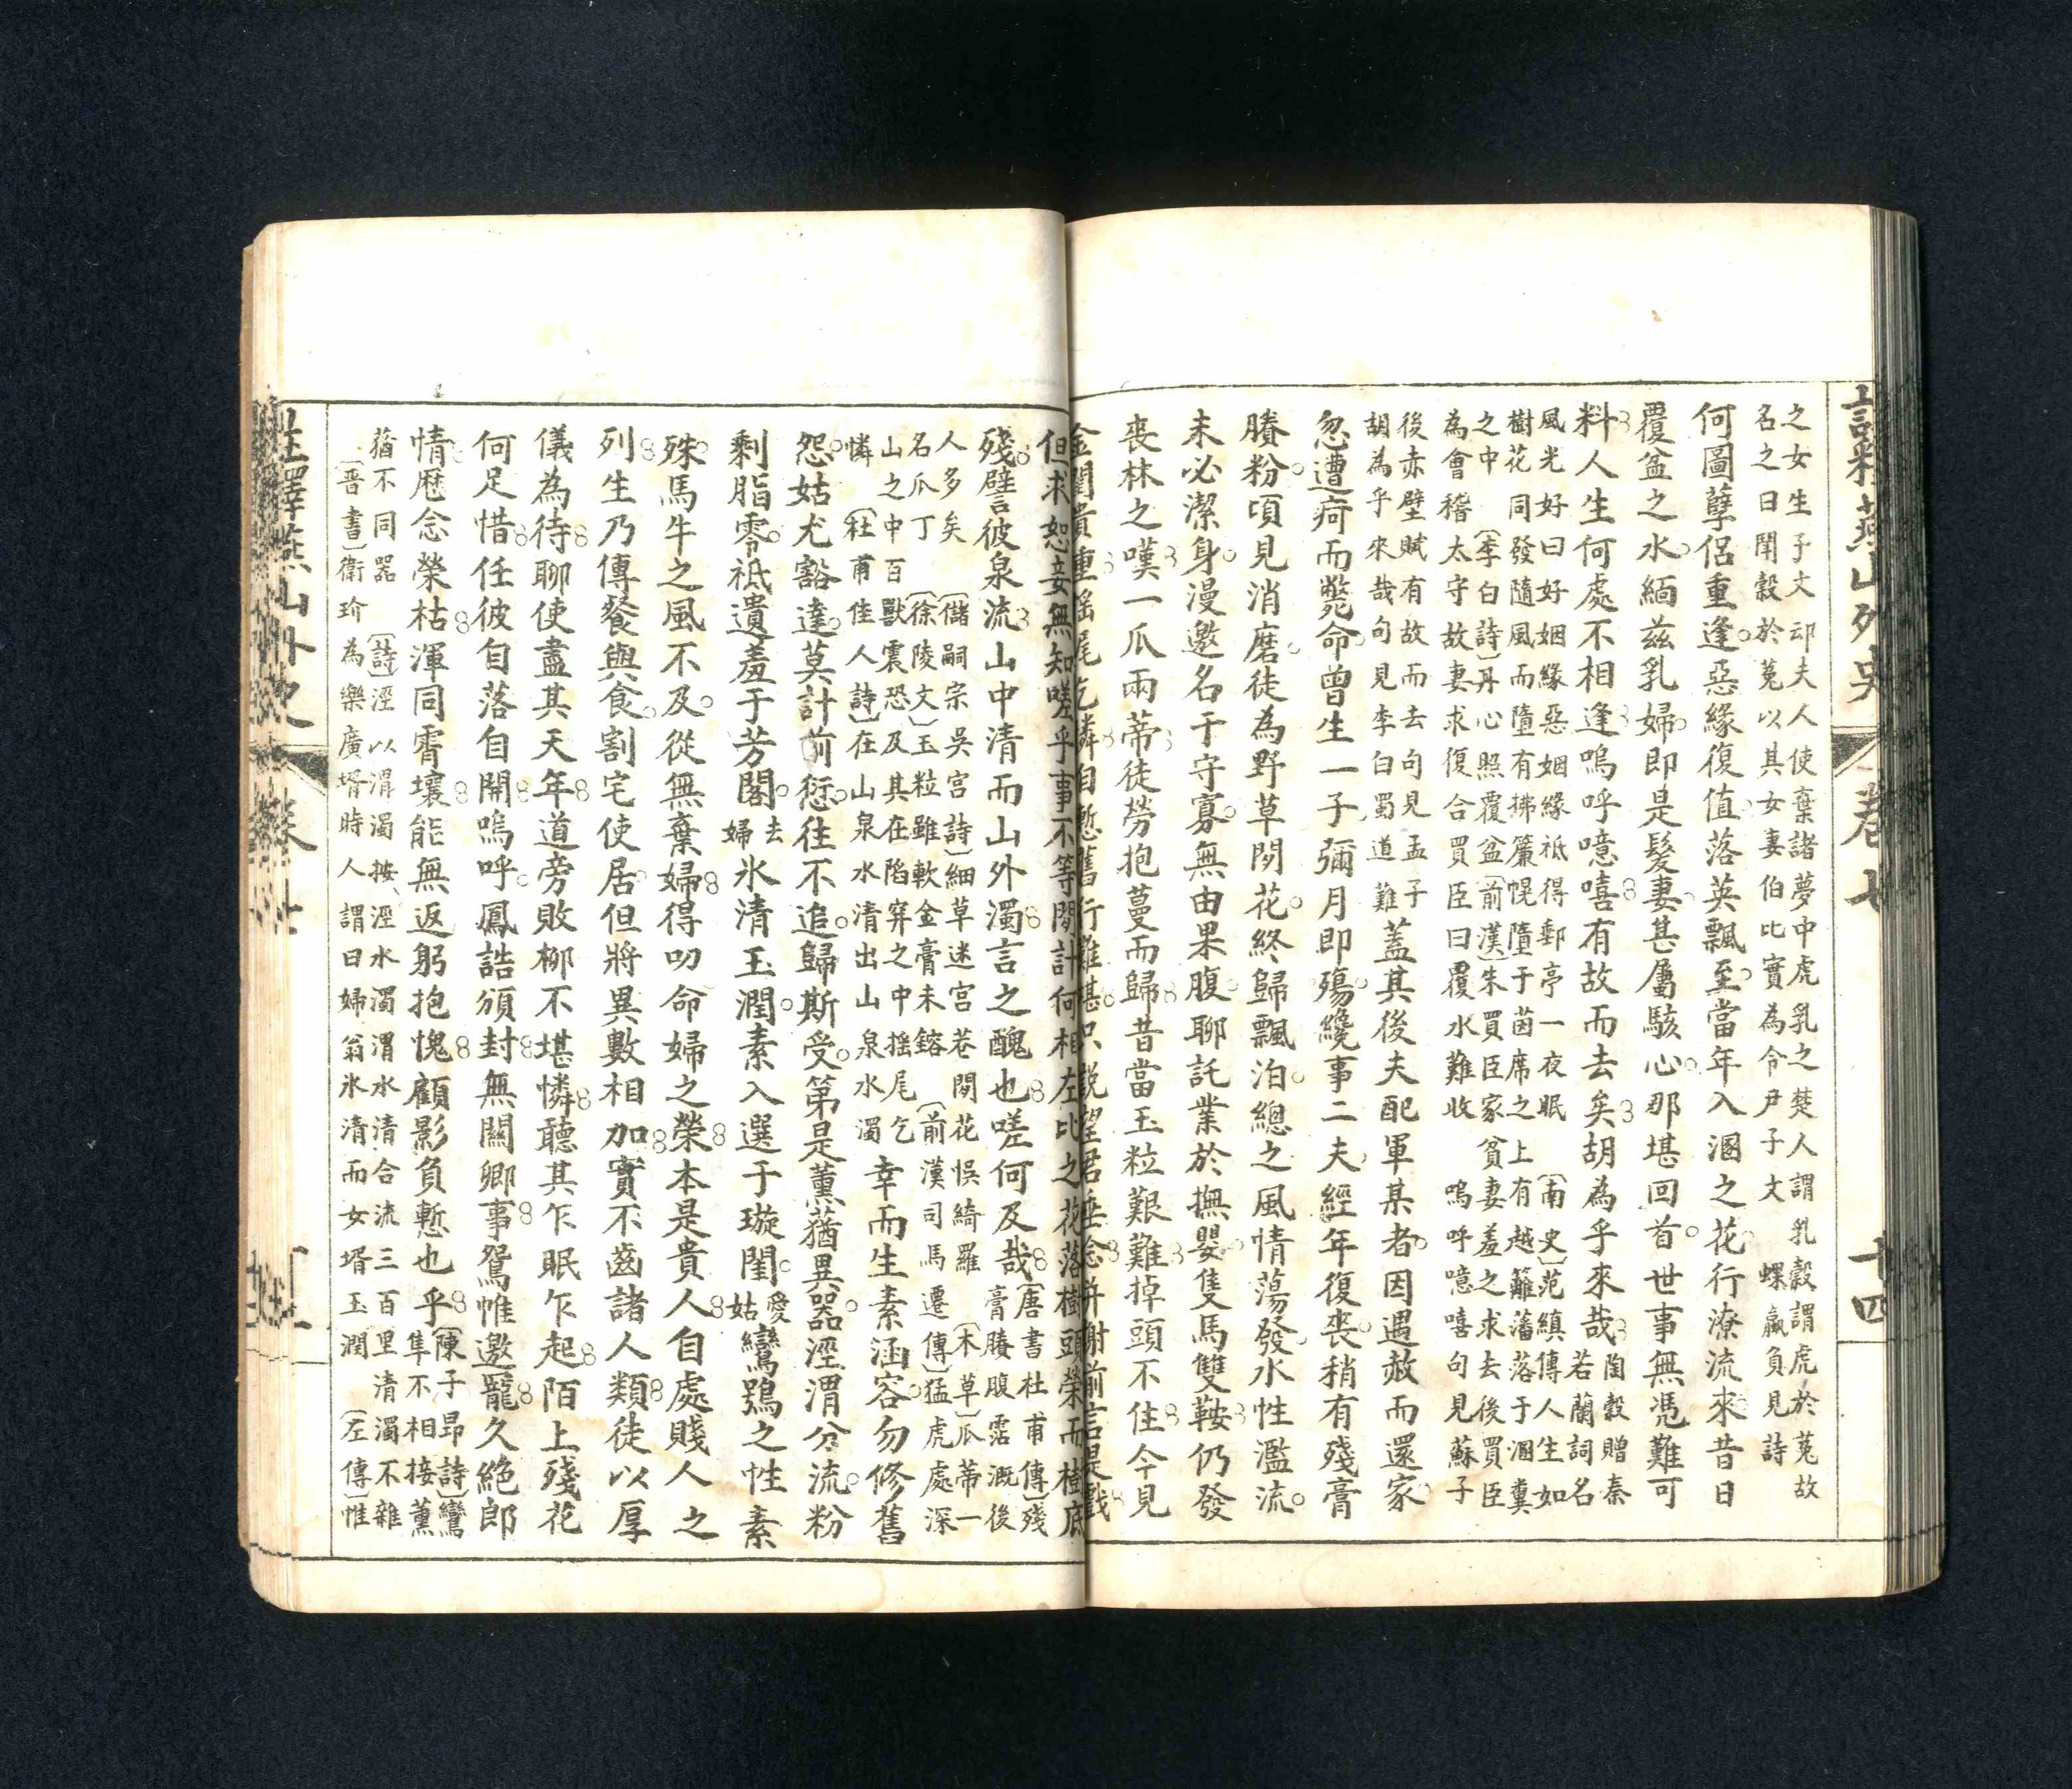 註釋燕山外史 卷七 十四
之女生子文䢵夫人使棄諸夢中虎乳之楚人謂乳穀謂虎於菟故
名之曰鬬穀於菟以其女妻伯比實為令尹子文 螺蠃負見詩
何圖孽侶重逢惡緣復值落英飄至當年入溷之花行潦流來昔日
覆盆之水緬茲乳婦即是髮妻甚屬駭心那堪回首世事無憑難可
料人生何處不相逢嗚呼噫嘻有故而去矣胡為乎來哉
陶穀贈秦
若蘭詞名
風光好曰好姻緣惡姻緣祇得郵亭一夜眠 〔南史〕范縝傳人生如
樹花同發隨風而墮有拂簾幌墮于茵席之上有越籬藩落于溷糞
之中 〔李白詩〕丹心照覆盆〔前漢〕朱買臣家貧妻羞之求去後買臣
為會稽太守故妻求復合買臣曰覆水難收 嗚呼噫嘻句見蘇子
後赤壁賦有故而去句見孟子
胡為乎來哉句見李白蜀道難
蓋其後夫配軍某者因遇赦而還家
忽遭疴而斃命曾生一子彌月即殤纔事二夫經年復喪稍有殘膏
賸粉頃見消磨徒為野草閒花終歸飄泊總之風情蕩發水性濫流
未必潔身漫邀名于守寡無由果腹聊託業於撫嬰隻馬雙鞍仍發
喪林之嘆一瓜兩蒂徒勞抱蔓而歸昔當玉粒艱難掉頭不住今見
金閨貴重搖尾乞憐自慙舊行難堪只說望君垂念并謝前言是戲
但求恕妾無知嗟乎事不等閒計何相左比之花落樹頭榮而樹底
殘譬彼泉流山中清而山外濁言之醜也嗟何及哉
〔唐書杜甫傳〕殘
膏賸腹霑溉後
人多矣 〔儲嗣宗吳宮詩〕細草迷宮巷閒花悞綺羅 〔本草〕瓜蒂一
名瓜丁 〔徐陵文〕玉粒雖軟金膏未鎔 〔前漢司馬遷傳〕猛虎處深
山之中百獸震恐及其在陷穽之中搖尾乞
憐 〔杜甫佳人詩〕在山泉水清出山泉水濁
幸而生素涵容勿修舊
怨姑尤豁達莫計前愆往不追歸斯受第是薰蕕異器涇渭分流粉
剩脂零祇遺羞于芳閣去婦氷清玉潤素入選于璇閨愛姑鸞鴞之性素
殊馬牛之風不及從無棄婦得叨命婦之榮本是貴人自處賤人之
列生乃傳餐與食割宅使居但將異數相加實不齒諸人類徒以厚
儀為待聊使盡其天年道旁敗柳不堪憐聽其乍眠乍起陌上殘花
何足惜任彼自落自開嗚呼鳳誥頒封無關卿事鴛帷邀寵久絕郎
情歷念榮枯渾同霄壤能無返躬抱愧顧影負慙也乎
〔陳子昂詩〕鸞
隼不相接薰
蕕不同器 〔詩〕涇以渭濁按涇水濁渭水清合流三百里清濁不雜
〔晋書〕衛玠為樂廣壻時人謂曰婦翁氷清而女壻玉潤 〔左傳〕惟
註釋燕山外史 卷七